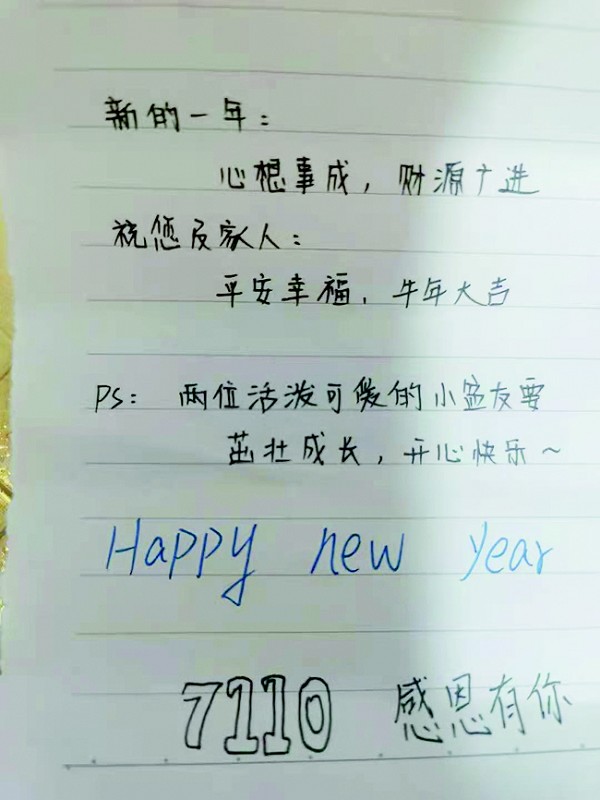 新的一年：
心想事成，财源广进
祝您及家人：
平安幸福，牛年大吉
PS：两位活泼可爱的小盆友要
茁壮成长，开心快乐~
Happy new year
7110 感恩有你